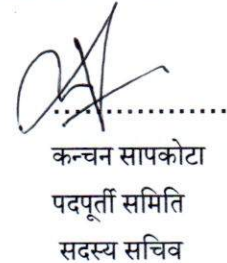 कन्चन सापकोटा
पदपूर्ती समिति
सदस्य सचिव